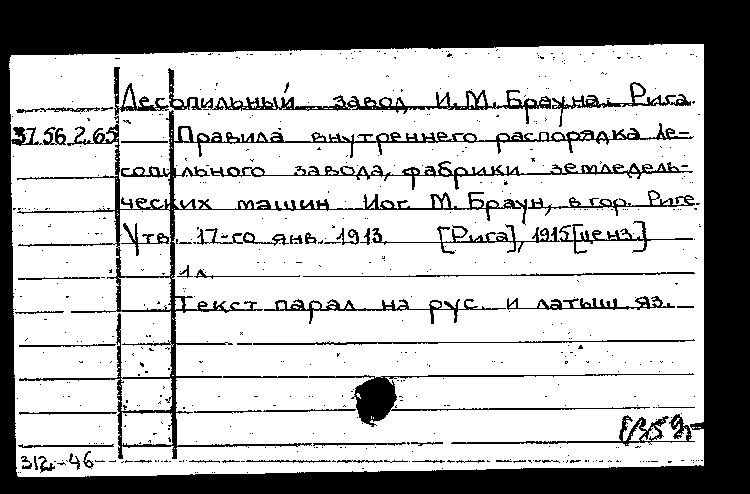 Лесопильный завод И.М. Брауна. Рига
37.56.2.65 Правила внутреннего распорядка ле-
сопильного завода, фабрики земледель-
ческих машин Иог. М. Браун, в гор. Риге
Утв. 17-го янв. 1913. [Рига], 1915 [ценз.]
1 л.
Текст парал. на рус. и латыш. яз.
312-46